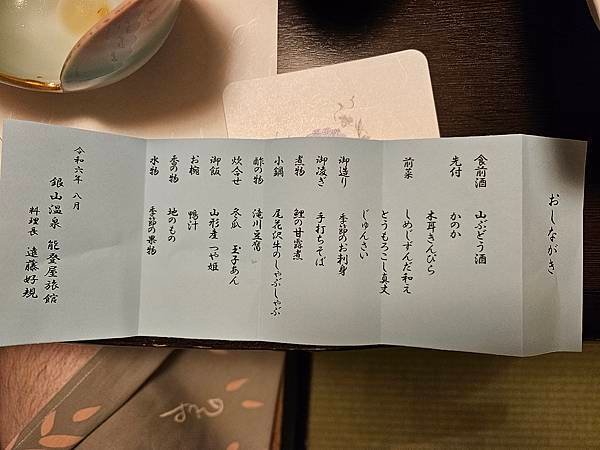 おしながき
食前酒 山ぶどう酒
先付 かのか
木耳きんぴら
前菜 しめじずんだ和え
とうもろこし真丈
じゅんさい
御造り 季節のお刺身
御凌ぎ 手打ちそば
煮物 鯉の甘露煮
小鍋 尾花沢牛のしゃぶしゃぶ
酢の物 滝川豆腐
炊合せ 冬瓜 玉子あん
御飯 山形産 つや姫
お椀 鴨汁
香の物 地のもの
水物 季節の果物
令和六年 八月
銀山温泉 能登屋旅館
料理長 遠藤好規